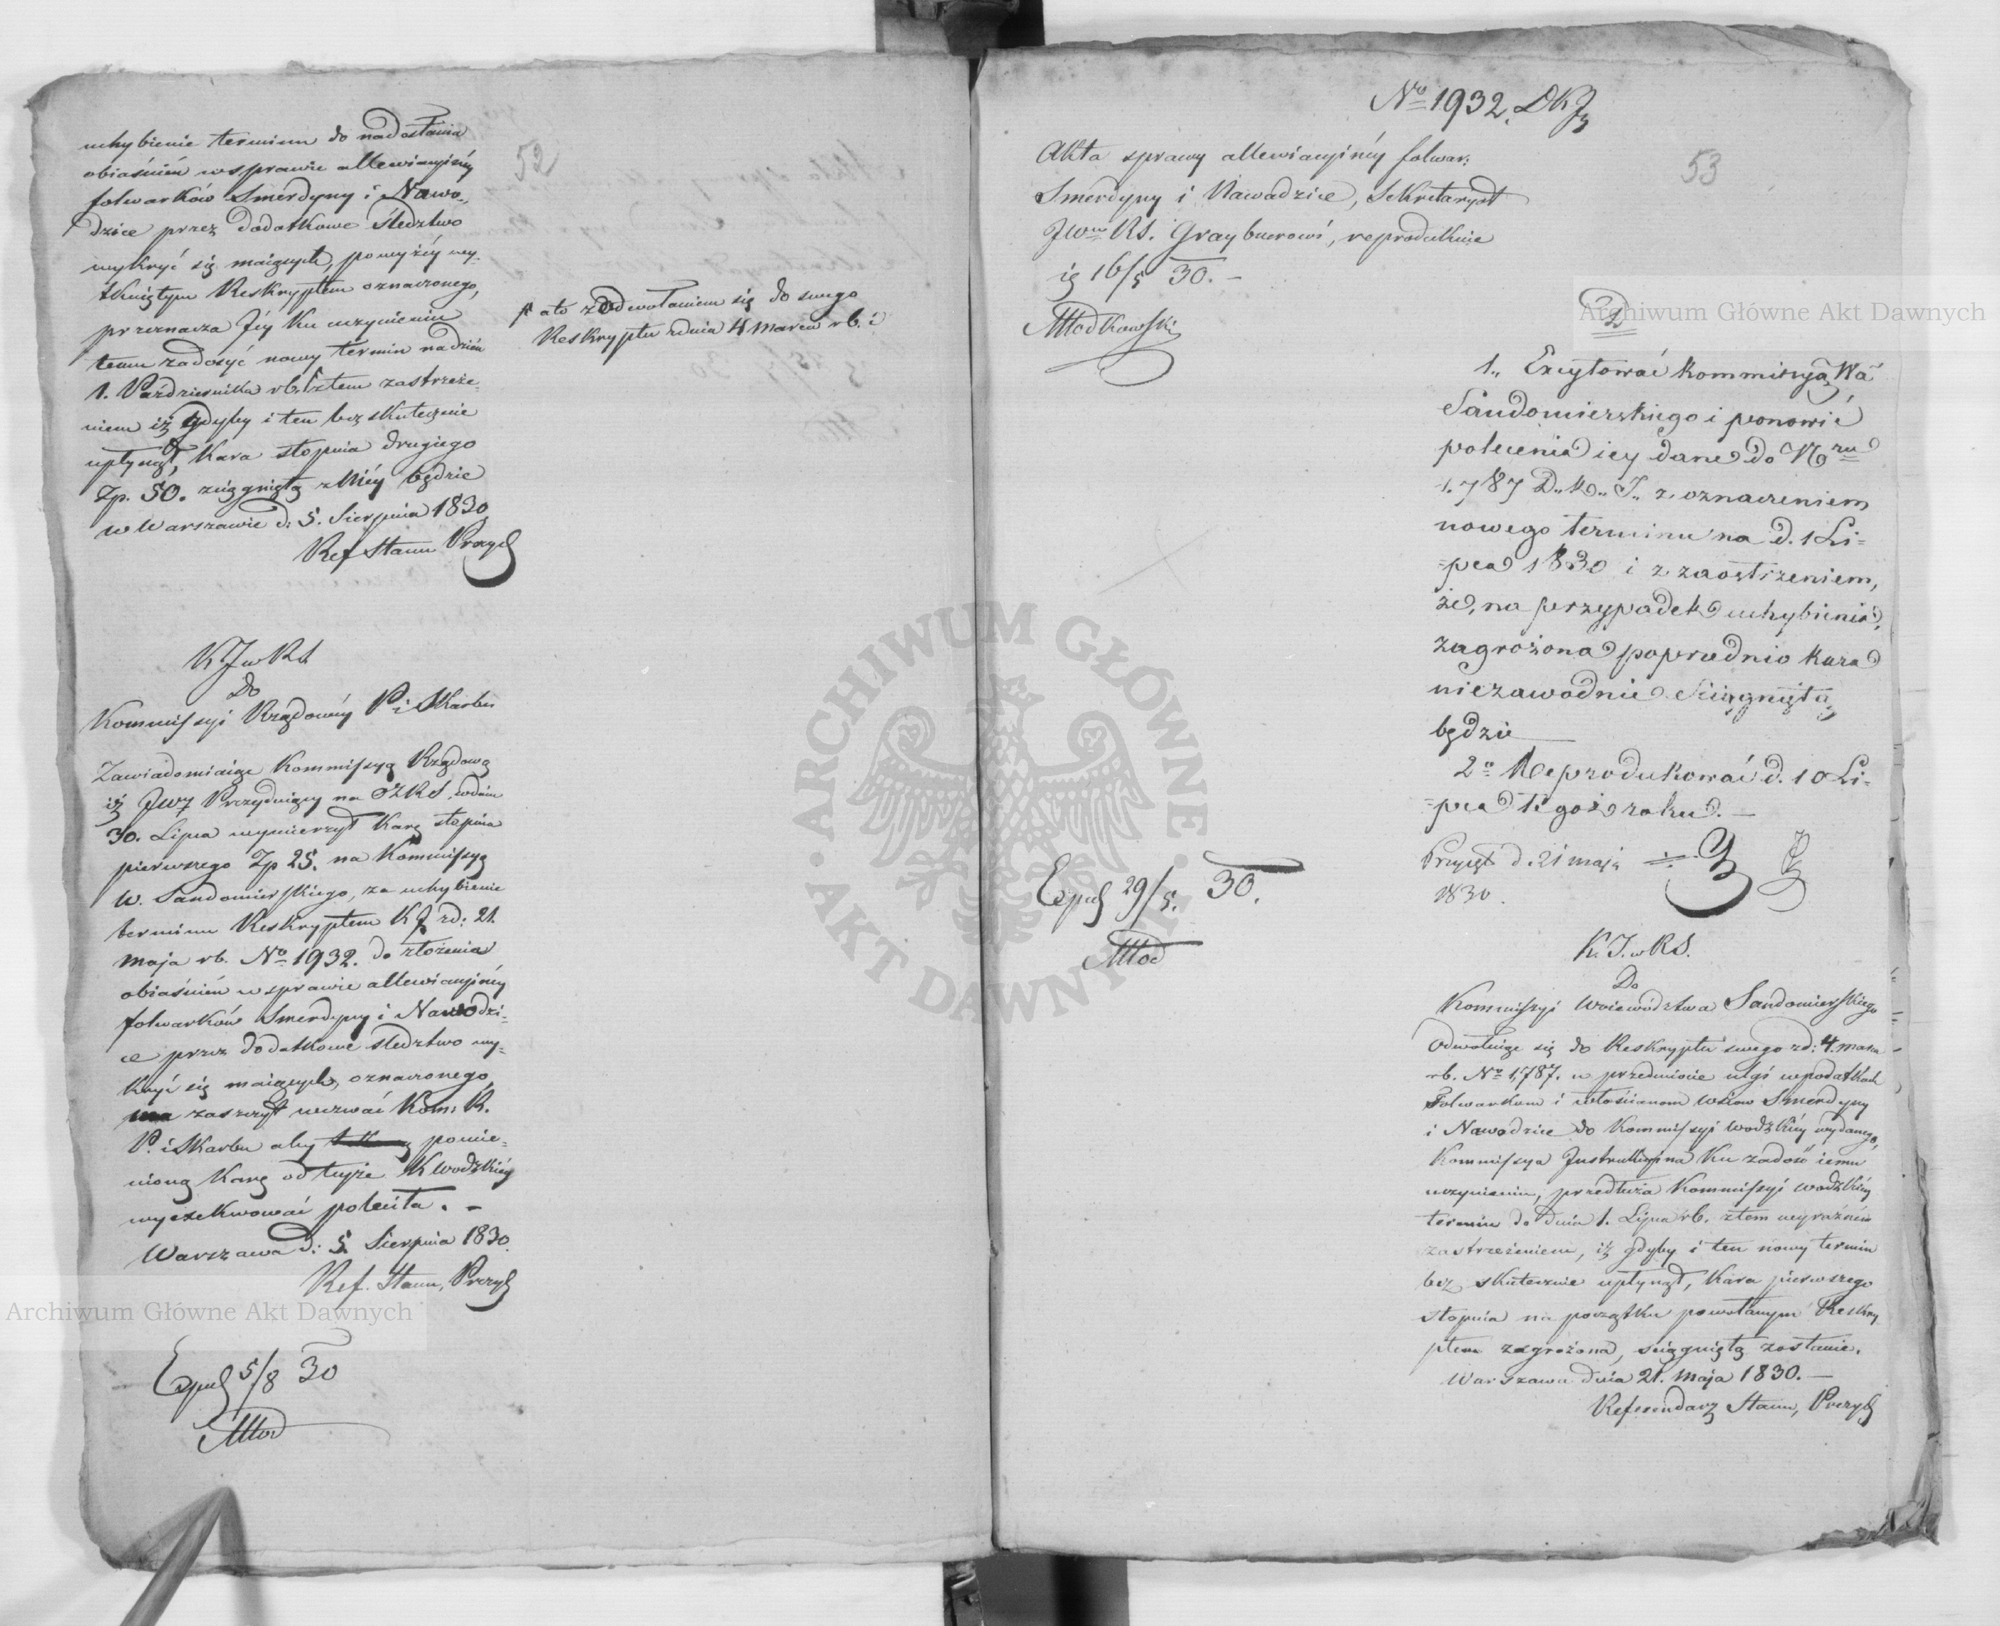 52
uchybienie terminu do nadesłania
obiaśnień w sprawie allewiacyjnéy
folwarków Smerdyny i Nawo„
dzice przez dodatkowe śledztwo
wykryć się maiących, powyżéy wy„
tkniętym Reskryptem oznaczonego,
przeznacza Jéy ku uczynieniu
temu zadosyć nowy termin na dzień
1. Października rb. i z tem zastrzeże„
niem iż gdyby i ten bezskutecznie
upłynął, kara stopnia drugiego
Zp. 50. ściągniętą z Niéy będzie
w Warszawie d: 5. Sierpnia 1830
Ref Stanu Prezyd
a to z odwołaniem się do swego
Reskryptu z dnia 4 marca rb. i
K J w K S
Do
Kommissyi Rządowéy P. i Skarbu
Zawiadomiaiąc Kommissyą Rządową
iż JWny Prezyduiący na OZKS, w dniu
30. Lipca wymierzył karę stopnia
pierwszego Zp 25. na Kommissyą
W. Sandomierskiego, za uchybienie
terminu Reskryptem KJ z d: 21.
maja rb. No 1932. do złożenia
obiaśnień w sprawie allewiacyjnéy
folwarków Smerdyny i Nawodzi„
ce przez dodatkowe śledztwo wy„
kryć się maiących, oznaczonego,
ma zaszczyt wezwać Kom: R.
P. i Skarbu aby pomie„
nioną karę od teyże K wodzkiéy
wyexekwować poleciła. –
Warszawa d: 5. Sierpnia 1830.
Ref. Stanu, Prezyd
Exped 5/8 30
Młod
No 1932. DKJ
53
Akta sprawy allewiacyjnéy folwar:
Smerdyny i Nawodzice, Sekretaryat
JWmu RS. Graybnerowi, reprodukuie
ię 16/5 30. –
Młodkowski
D
1„ Excytować Kommissyą Wa
Sandomierskiego i ponowić
polecenia iey dane do Nru
1.787 D„ K„ J„ z oznaczeniem
nowego terminu na d. 1 Li=
=pca 1830 i z zaostrzeniem,
że, na przypadek uchybienia,
zagrożona poprzednio kara
niezawodnie ściągniętą
będzie
2o Reprodukować d. 10 Li=
=pca t. goż roku. –
Przyjęł d. 21 maja
1830.
Exped 29/5. 30.
Młod
K. J. w K S.
Do
Kommissyi Woiewództwa Sandomierskiego
Odwołuiąc się do Reskryptu swego z d: 4. marca
rb. No 1,787. w przedmiocie ulgi w podatkach
Folwarkom i włościanom wsiow Smerdyny
i Nawodzice do Kommissyi wodzkiéy wydanego,
Kommissya Instrukcyina ku zadość iemu
uczynieniu, przedłuża Kommissyi wodzkiéy
termin do dnia 1. Lipca rb. z tem wyraźném
zastrzeżeniem, iż gdyby i ten nowy termin
bez skutecznie upłynął, kara pierwszego
stopnia na początku powołanym Reskry
ptem zagrożona, ściągniętą zostanie.
Warszawa dnia 21. Maja 1830. –
Referendarz Stanu, Prezyd
Archiwum Główne Akt Dawnych
Archiwum Główne Akt Dawnych
ARCHIWUM GŁÓWNE AKT DAWNYCH